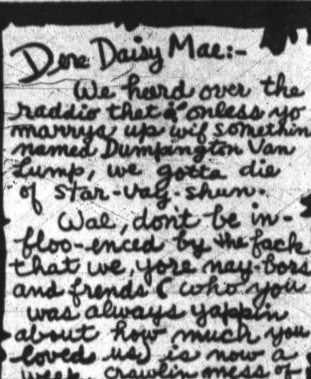 Dere Daisy Mae:-
We heard over the
raddio that onless yo
marrys up wif somethin
named Dumpington Van
Lump, we gotta die
of star-vay-shun.
Wal, don't be in-
floo-enced by the fack
that we, yore nay-bors
and frends (who you
was always yappin
about how much you
loved us) is now a
week, crawlin mess of